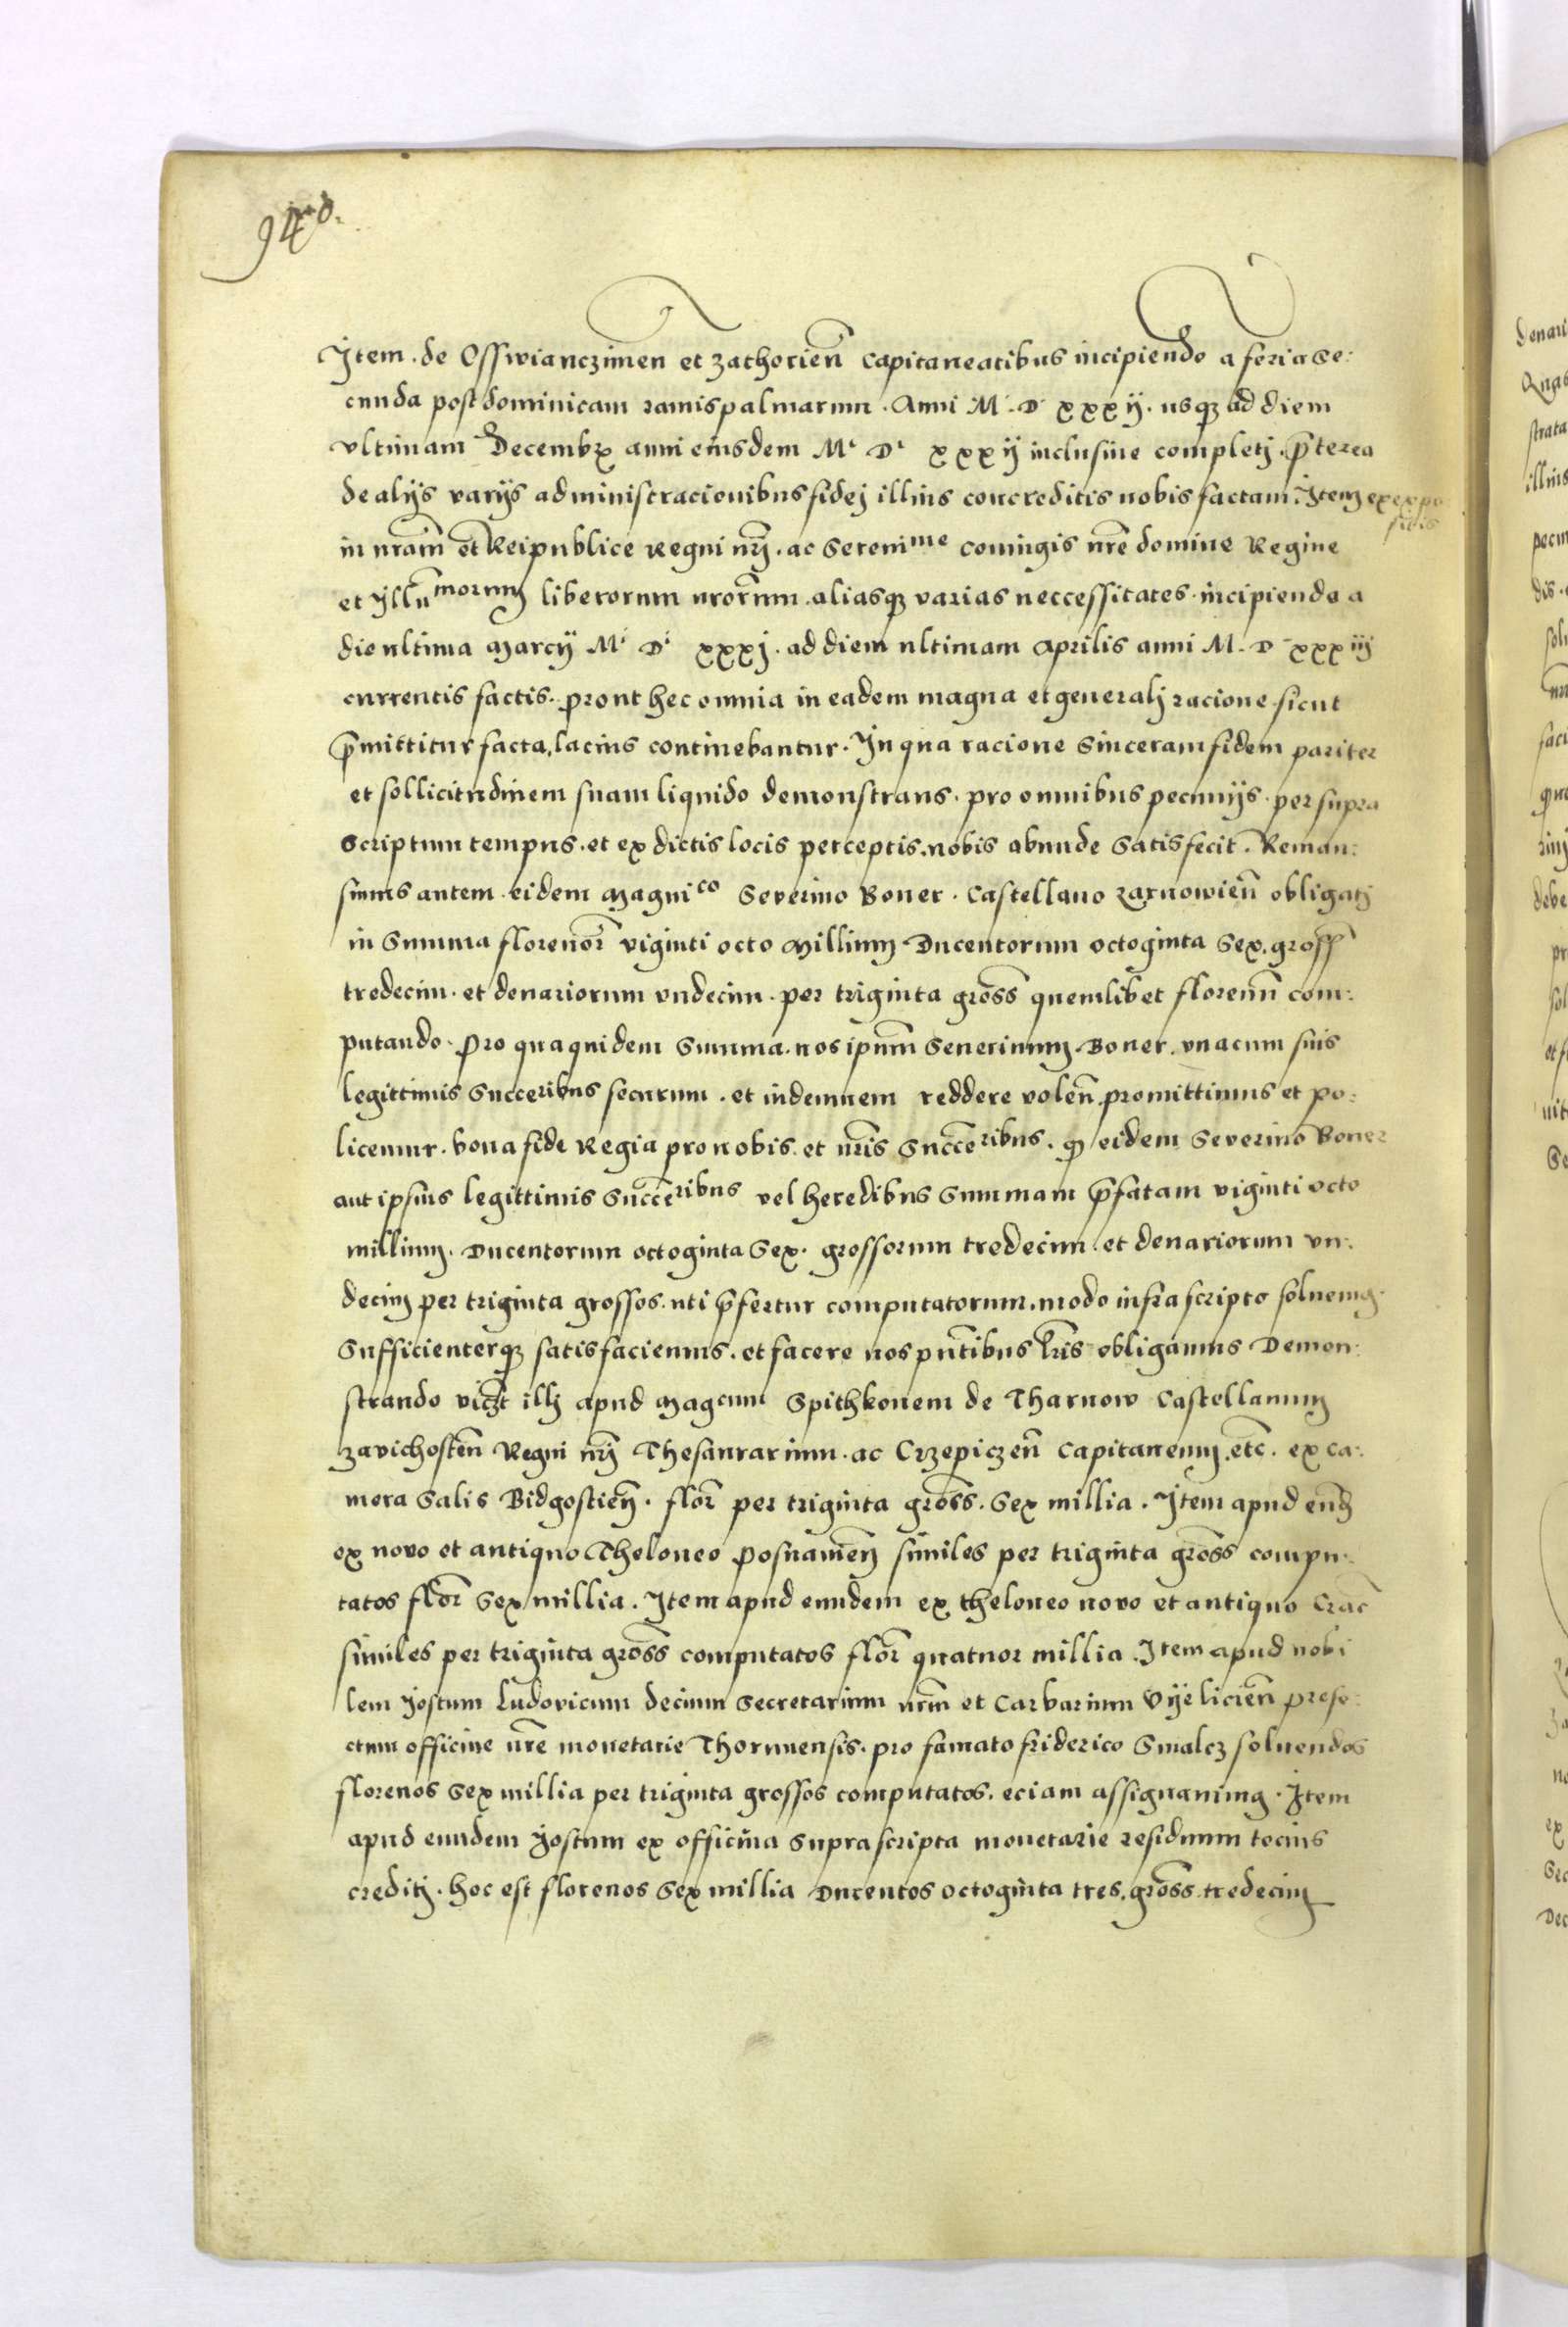 Item de Osswianczimen et zathorien̄ capitaneatibus incipiendo a feria se:
cunda post dominicam ramispalmarum. Anni M. D xxxij. usqȝ ad diem
ultimam Decembr anni eiusdem Mi Di xxxij inclusiue completj. p̄terea
de alijs varijs administracionibus fidej illius concreditis nobis factam. Item ex expo
sitis
in nr̄am et Reipublice Regni nr̄j. ac Serenime coniugis nr̄e domine Regine
et Illumorum liberorum nr̄orum. aliasqȝ varias neccessitates. incipiendo a
die ultima Marcij Mi Di xxxj. ad diem ultimam Aprilis anni M. D xxxiij
currentis factis. prout hec omnia in eadem magna et generalj racione sicut
p̄mittitur facta, lacius continebantur. In qua racione sinceram fidem pariter
et sollicitudinem suam liquido demonstrans. pro omnibus pecunijs. per supra
scriptum tempus. et ex dictis locis perceptis. nobis abunde satisfecit. Reman:
simus autem eidem Magnico Severino Boner. Castellano zarnowien̄ obligatj
in Summa florenor̄ viginti octo Millium Ducentorum octoginta Sex. gross
tredecim. et denariorum undecim. per triginta gross̄ quemlibet florenū com:
putando. Pro quaquidem Summa. nos ipsum̄ Seuerinum Boner. unacum suis
legittimis Succeribus securum. et indemnem reddere volen̄ promittimus et po:
licemur. bona fide Regia pro nobis. et nr̄is Succeribus. qd eidem Severino Boner
aut ipsius legittimis Succeribus vel heredibus Summam p̄fatam viginti octo
millium. Ducentorum octoginta Sex. grossorum tredecim. et denariorum un:
decim per triginta grossos. uti p̄fertur computatorum. modo infrascripto soluemus.
Sufficienterqȝ satisfaciemus. et facere nos pn̄tibus lr̄is obligamus Demon:
strando viczt illj apud Magcum Spithkonem de Tharnow Castellanum
zavichosten̄ Regni nr̄j Thesaurarium. ac Crzepiczen̄ Capitaneum. etc̄. ex ca:
mera Salis Bidgostien̄. flor̄ per triginta gross̄. Sex millia. Item apud eund̄
ex novo et antiquo Theloneo Posnanien̄ similes per triginta gross̄ compu:
tatos flor̄ Sex millia. Item apud eundem ex theloneo novo et antiquo Crac̄
similes per triginta gross̄ computatos flor̄ quatuor millia. Item apud nobi
lem Jostum Ludovicum decium Secretarium nr̄m et Carbarium Vijelicien̄ prefe:
ctum officine nr̄e monetarie Thorunensis. pro famato friderico Smalcz soluendos
florenos Sex millia per triginta grossos computatos. eciam assignamus. Item
apud eundem Jostum ex officina suprascripta monetarie residuum tocius
creditj. hoc est florenos Sex millia Ducentos octoginta tres. gross̄. tredecim